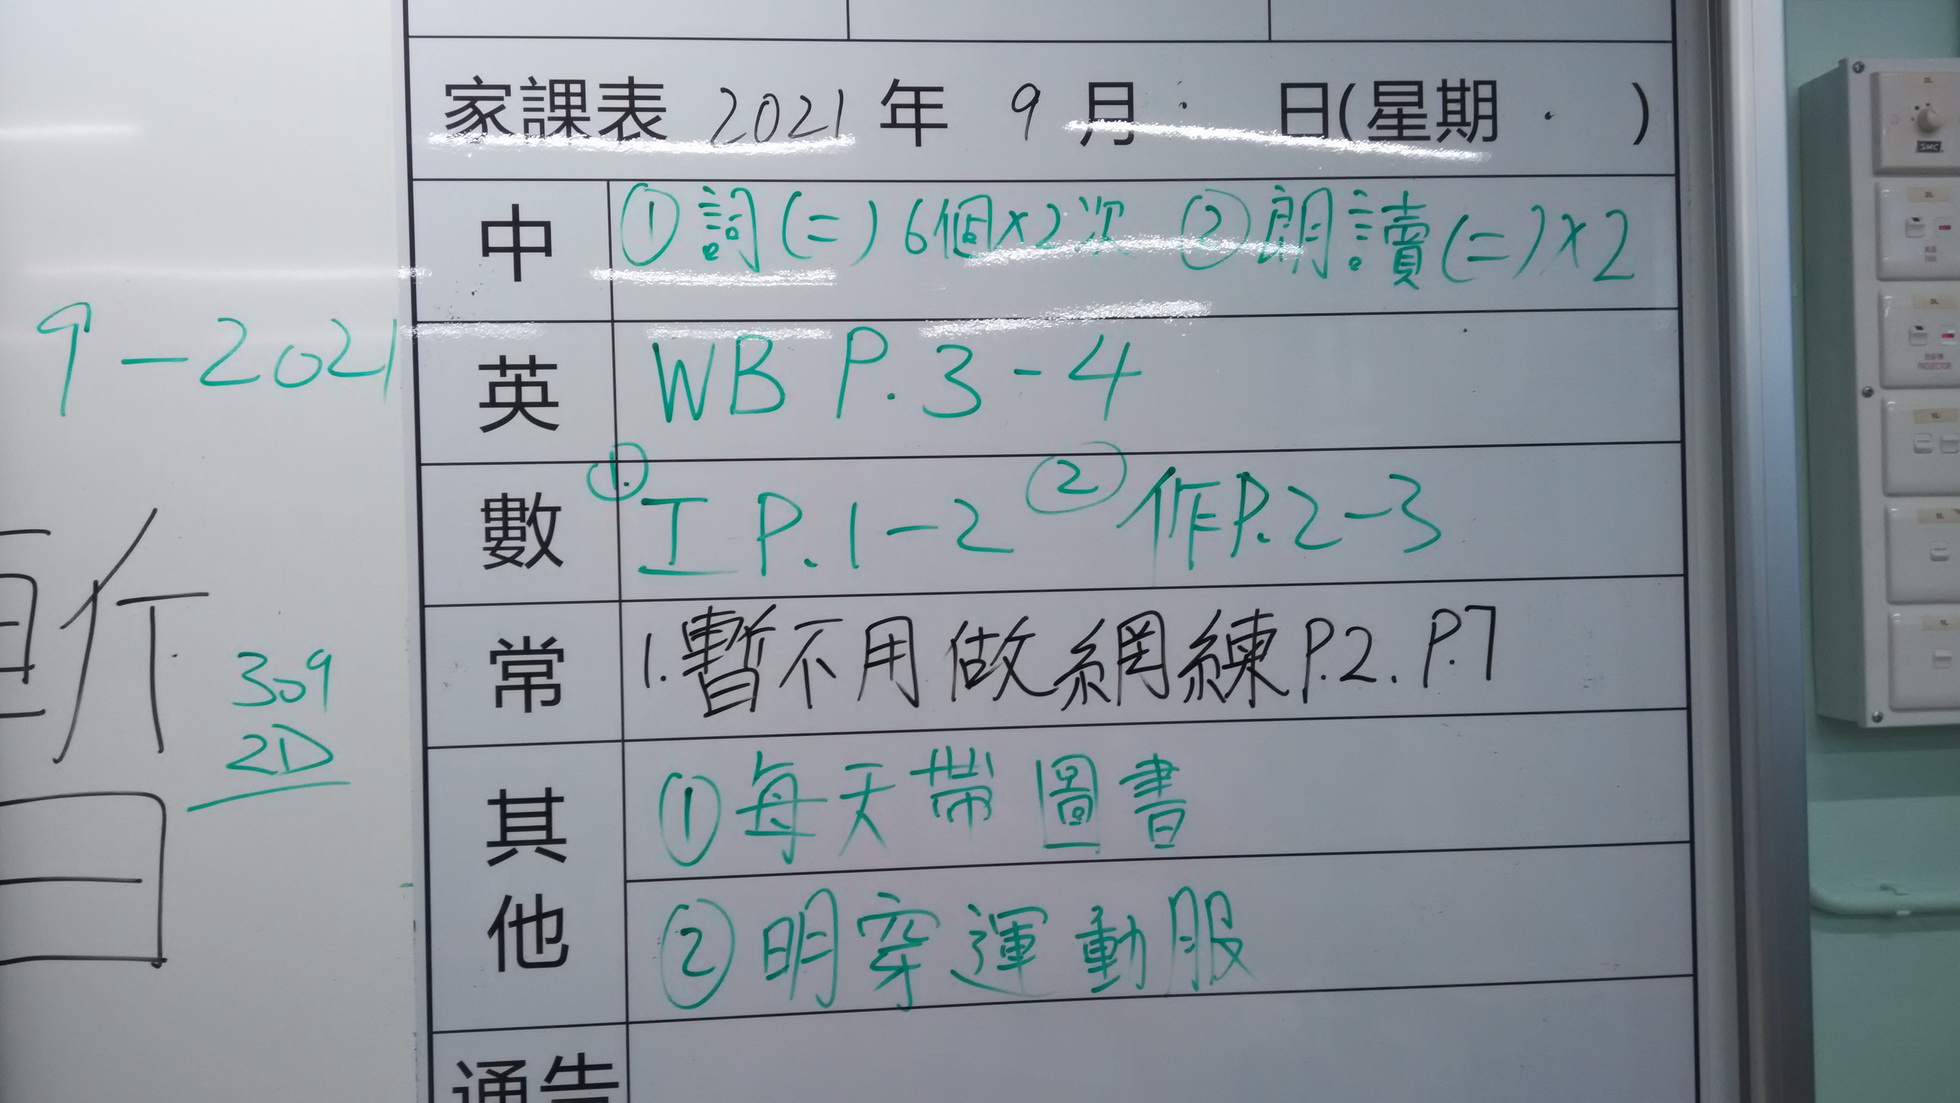 家課表 2021 年 9 月 日(星期 )
中 ①詞(二)6個×2次 ②朗讀(二)×2
9-2021
英 WB P.3-4
數 ①工 P.1-2 ②作P.2-3
常 1.暫不用做網練P.2.P.7
309
2D
其他 ①每天帶圖書
②明穿運動服
通告
SMC
PROJECTOR